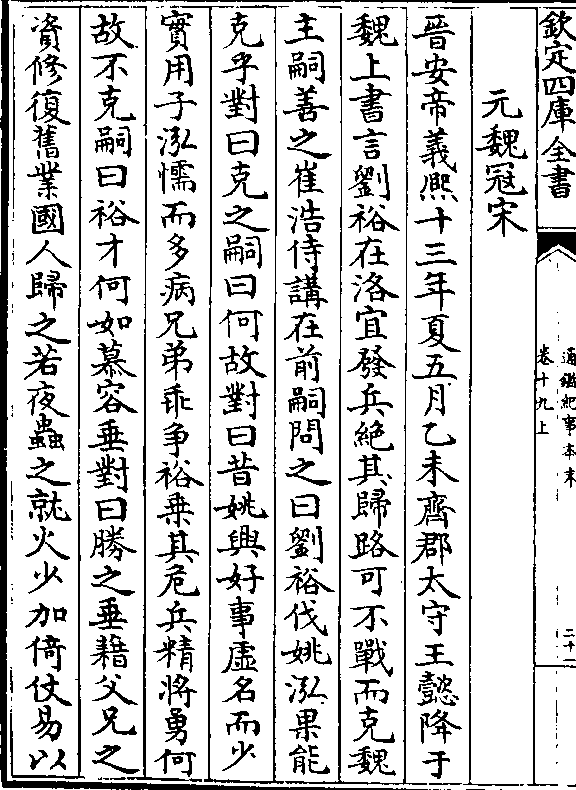 欽定四庫全書
通鑑紀事本末
卷十九上
二十一
元魏冦宋
晉安帝義熈十三年夏五月乙未齊郡太守王懿降于
魏上書言劉裕在洛宜發兵絶其歸路可不戰而克魏
主嗣善之崔浩侍講在前嗣問之曰劉裕伐姚泓果能
克乎對曰克之嗣曰何故對曰昔姚興好事虛名而少
實用子泓懦而多病兄弟乖争裕乗其危兵精將勇何
故不克嗣曰裕才何如慕容垂對曰勝之垂藉父兄之
資修復舊業國人歸之若夜蟲之就火少加倚仗易以